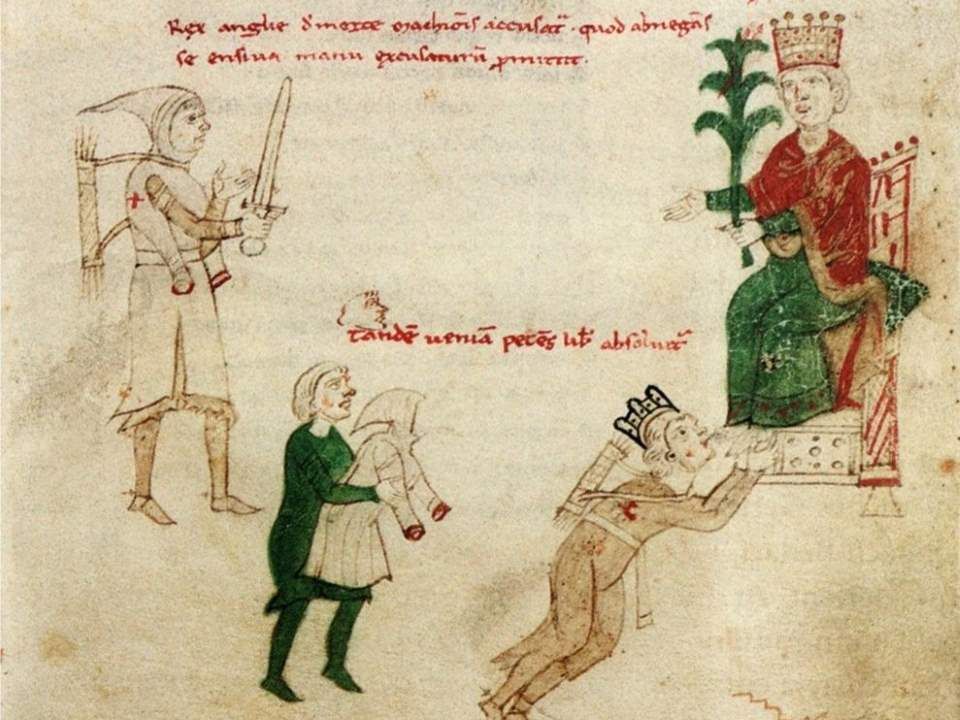 Rex anglie d morte Marchiōis accusat᷑. quod abnegās
se ensiua manu excusaturū ꝓmittit.
tandē ueniā petēs lib̄ absoluit᷑